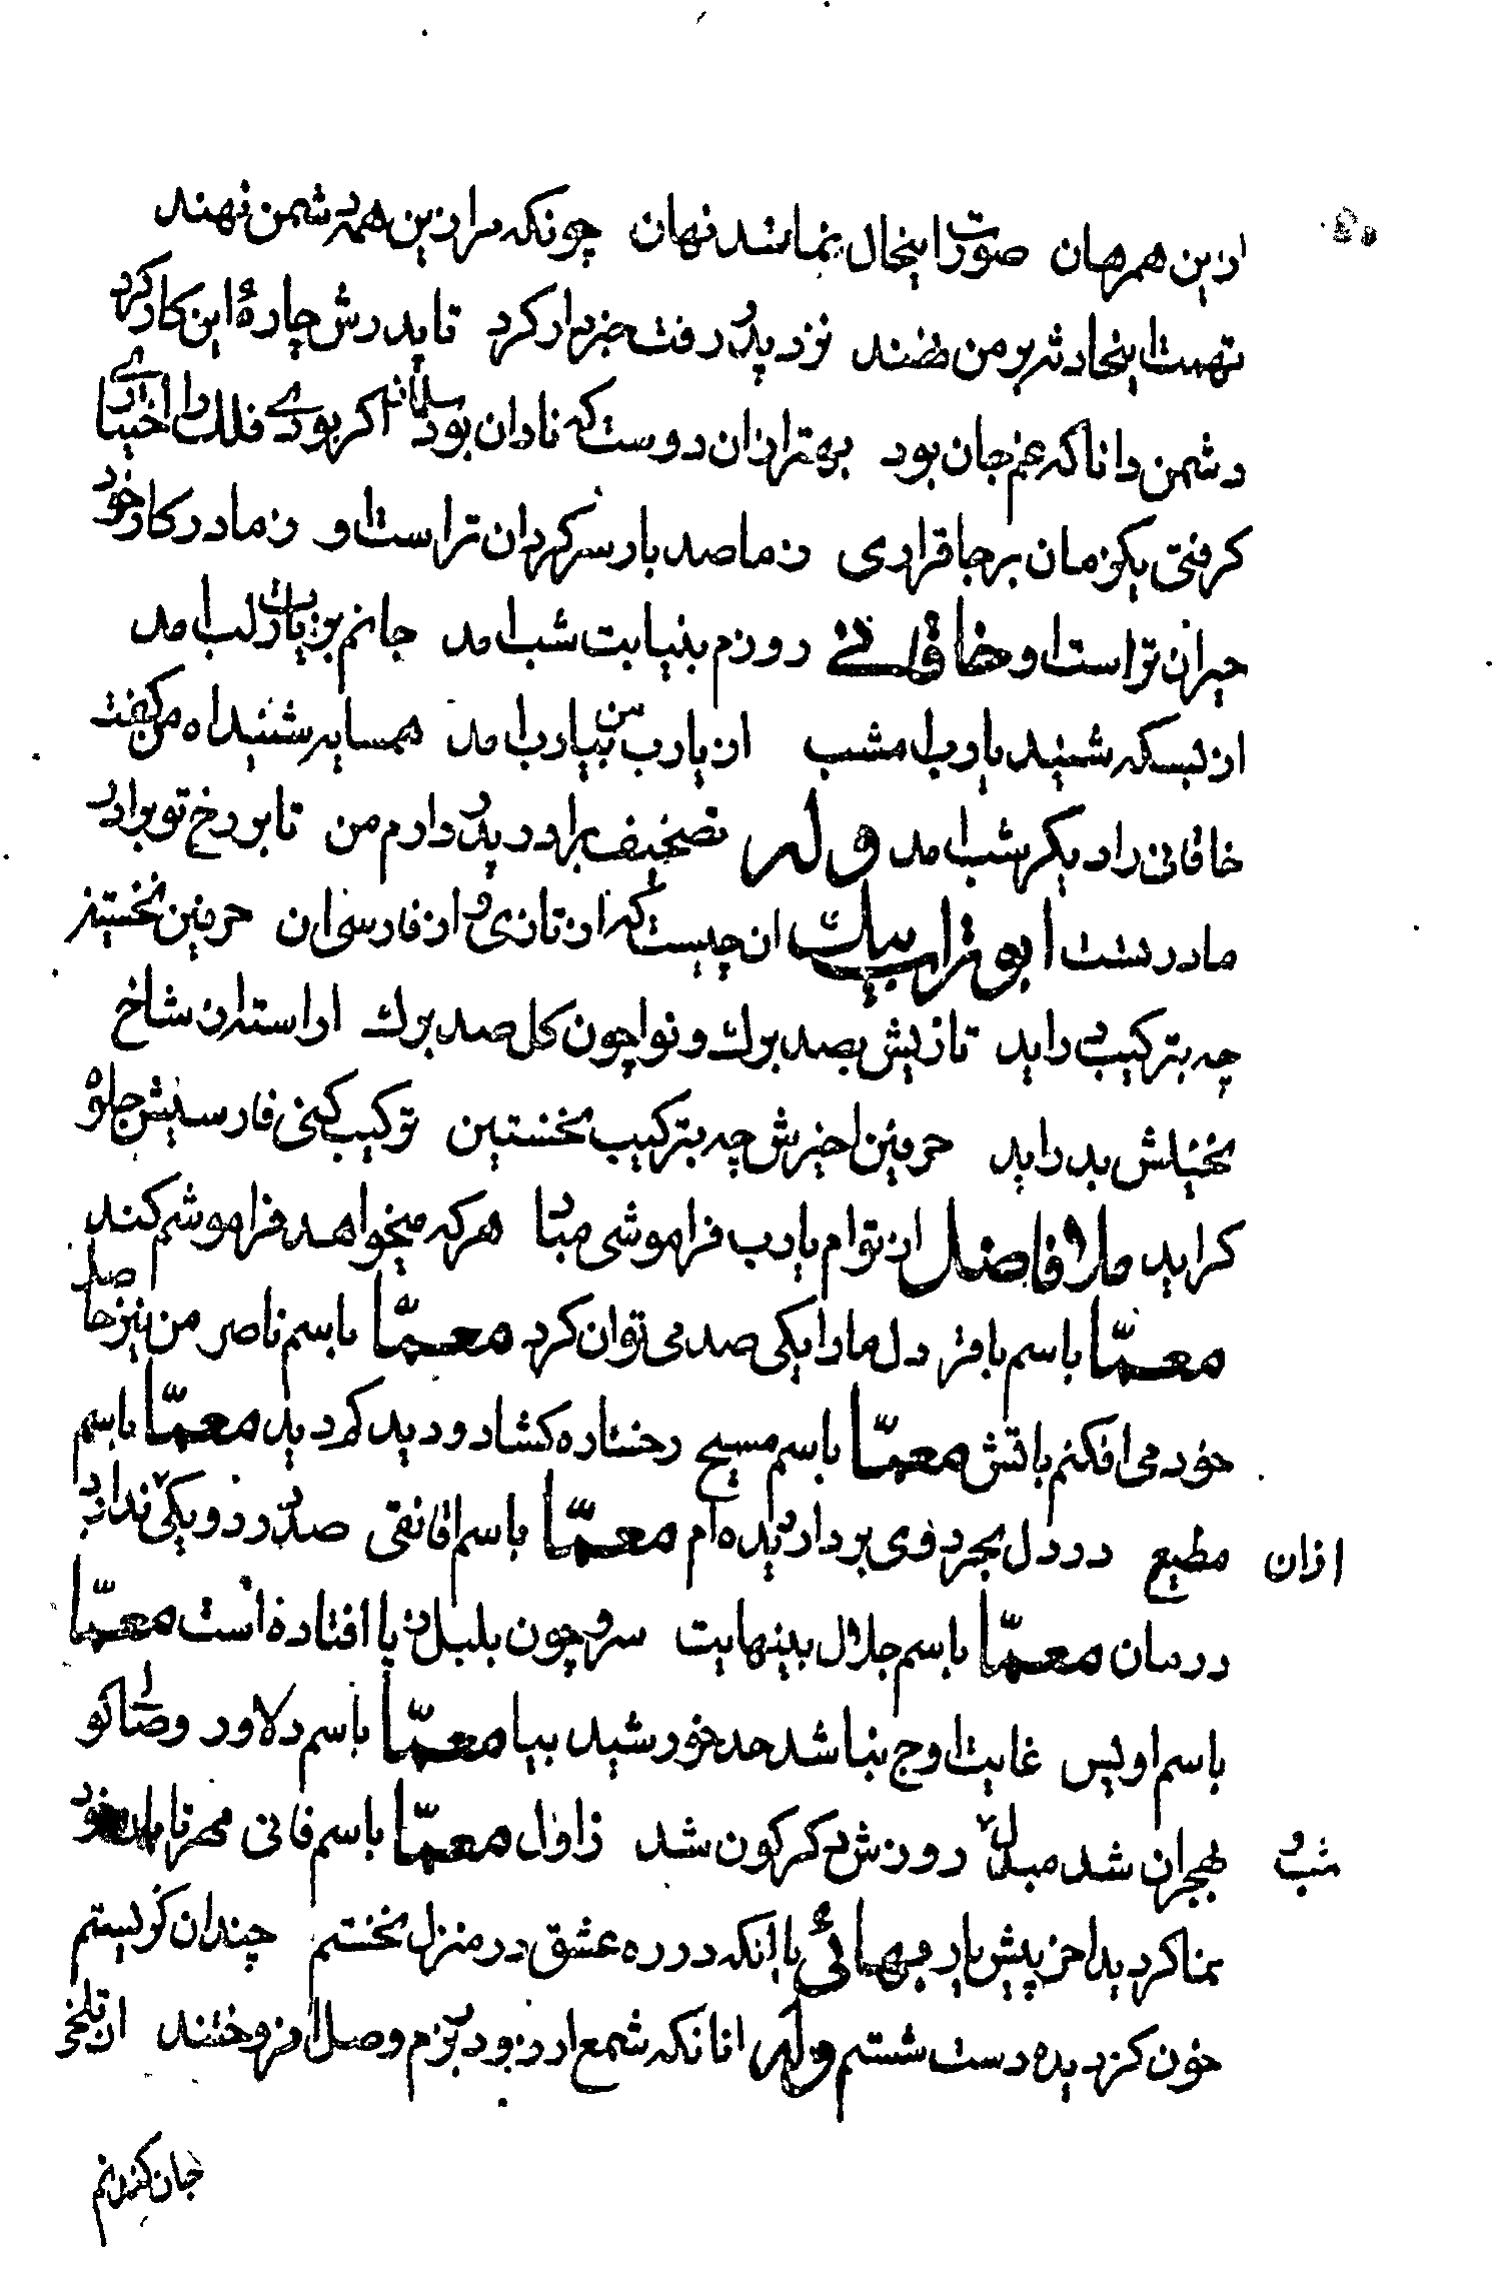 ازین همرهان صورت اینحال نمانند نهان چونکه مرا زین همه دشمن نهند
تهمت اینحادثه بر من نهند نزد پدر رفت خبردار کرد تا پدرش چارهٔ این کار کرد
دشمن دانا که غم جان بود بهتر ازان دوست که نادان بود سلمان اکر بودی فلک را اختیاری
کرفتی یکزمان برجا قراری زما صد بار سرکردان تراست او زما در کار خود
حیران تراست او خاقانی روزم بنیابت شب امد جانم بزیارت لب امد
از بسکه شنید یارب امشب از یارب من بیارب امد همسایه شنید اه من کفت
خاقانی را دیکر شب امد وله تصحیف برادر پدر دارم من تا بر رخ تو برادر
مادر تست ابو تراب بیک ان چیست که از تازی و از فارسی ان حرفین نخستین
چه بترکیب دراید تازیش بصد برک و نوا چون کل صد برک اراسته از شاخ
نخیلش بدراید حرفین اخیرش چه بترکیب نخستین ترکیب کنی فارسیش جلوه
کراید ملا فاضل از توام یارب فراموشی مباد هرکه میخواهد فراموشم کند
معمّا باسم باقر دل ما را یکی صد می توان کرد معمّا باسم ناصر من نیز حاصل
خود می افکنم باتش معمّا باسم مسیح رخساره کشاد و دید کم دید معمّا باسم
مطیع درد دل بجر ذوی بردار دیده ام معمّا باسم اقانقی صد درد و یکی ندارد ازان
درمان معمّا باسم جلال بینهایت سرو چون بلبل ز پا افتاده است معمّا
باسم اویس غایت اوج بنا شد حد خورشید بیا معمّا باسم دلاور وصال کو
بهجران شد مبدل روزش دکرکون شد زاول معمّا باسم فانی مهر تابان خود شب و
نما کردید اخر پیش یار بهائی با انکه در ره عشق در منزل نخستم چندان کریستم
خون کز دیده دست شستم وله انانکه شمع ارزو در بزم وصل افروختند از تلخی
جان کندنم